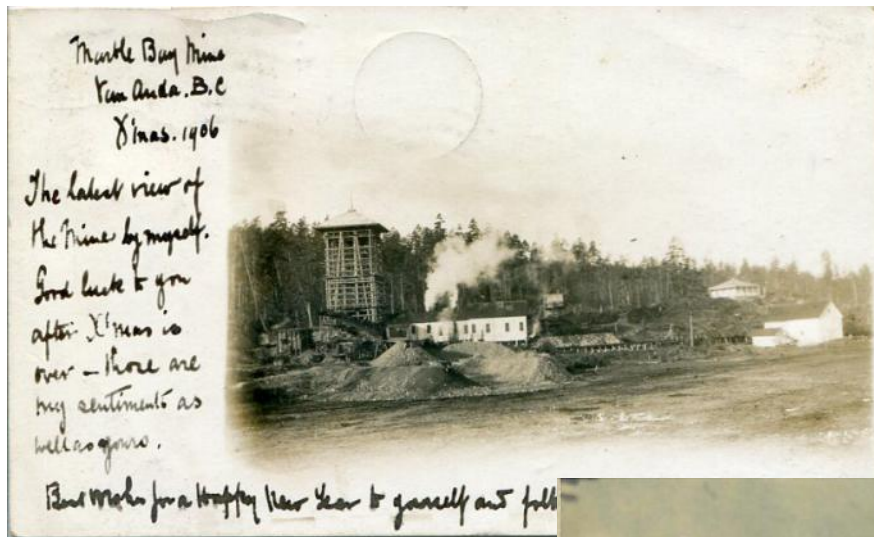 Marble Bay Mine
Van Anda. B.C
X'mas. 1906
The latest view of
the Mine by myself.
Good luck to you
after X'mas is
over – those are
my sentiments as
well as yours.
Best Wishes for a Happy New Year to yourself and